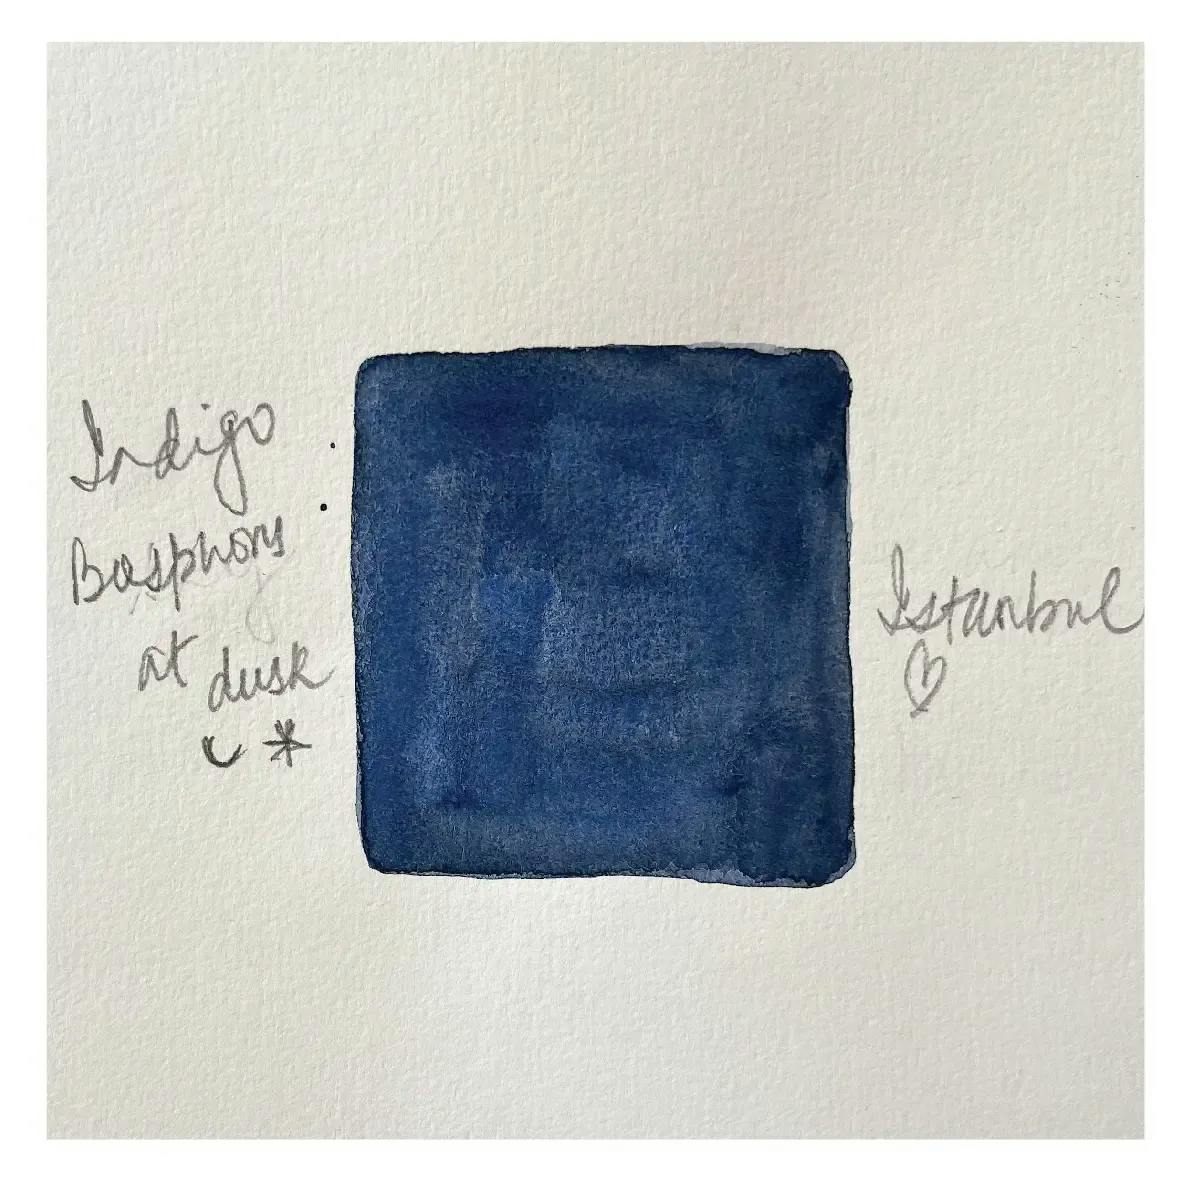 Indigo
Bosphorus
at dusk
Istanbul